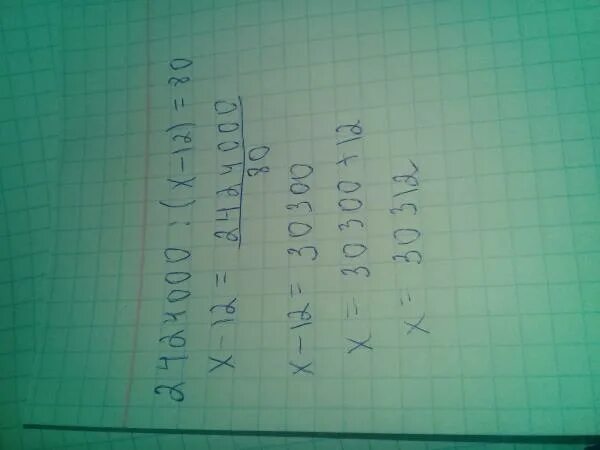 2424000 : (x-12) = 80
x-12 = 2424000
80
x-12 = 30300
x = 30300+12
x = 30312